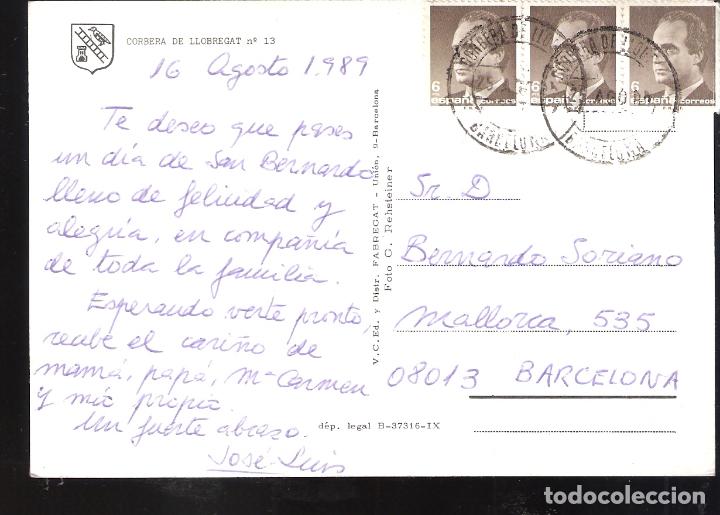 CORBERA DE LLOBREGAT nº 13
16 Agosto 1989
Te deseo que pases
un día de San Bernardo
lleno de felicidad y
alegría, en compañía
de toda la familia.
Esperando verte pronto,
recibe el cariño de
mamá, papá, Mª Carmen
y mío propio.
Un fuerte abrazo.
José-Luis
V. C. Ed. y Distr. FABREGAT - Unión, 9-Barcelona
Foto C. Rehsteiner
dép. legal B-37316-IX
6
españa correos
6
españa correos
6
españa correos
CORBERA DE LLOB
BARCELONA
CORBERA DE LLOB
BARCELONA
Sr D
Bernardo Soriano
Mallorca, 535
08013 BARCELONA
todocoleccion.net